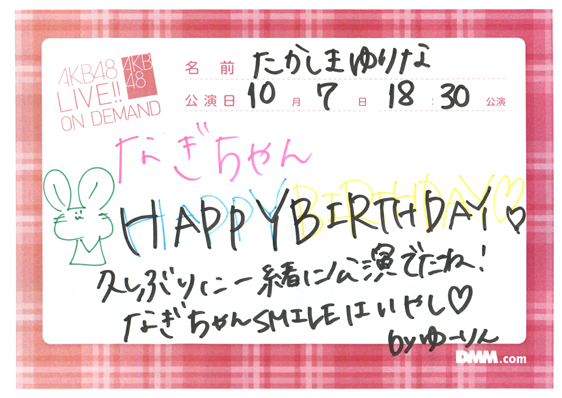 AKB48
LIVE!!
ON DEMAND
AKB
48
名前 たかしまゆりな
公演日 10月7日 18:30公演
なぎちゃん
HAPPY BIRTHDAY♡
久しぶりに一緒に公演でたね!
なぎちゃんSMILEはいやし♡
byゆーりん
DMM.com